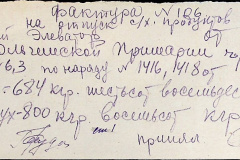 фактура №106
на отпуск с/х. продуктов
Элеватор от
Примарии
6,3 по наряду №1416, 418 от
=684 кгр. шестьсот восемьдес
800 кгр. восемьсот кгр
принял